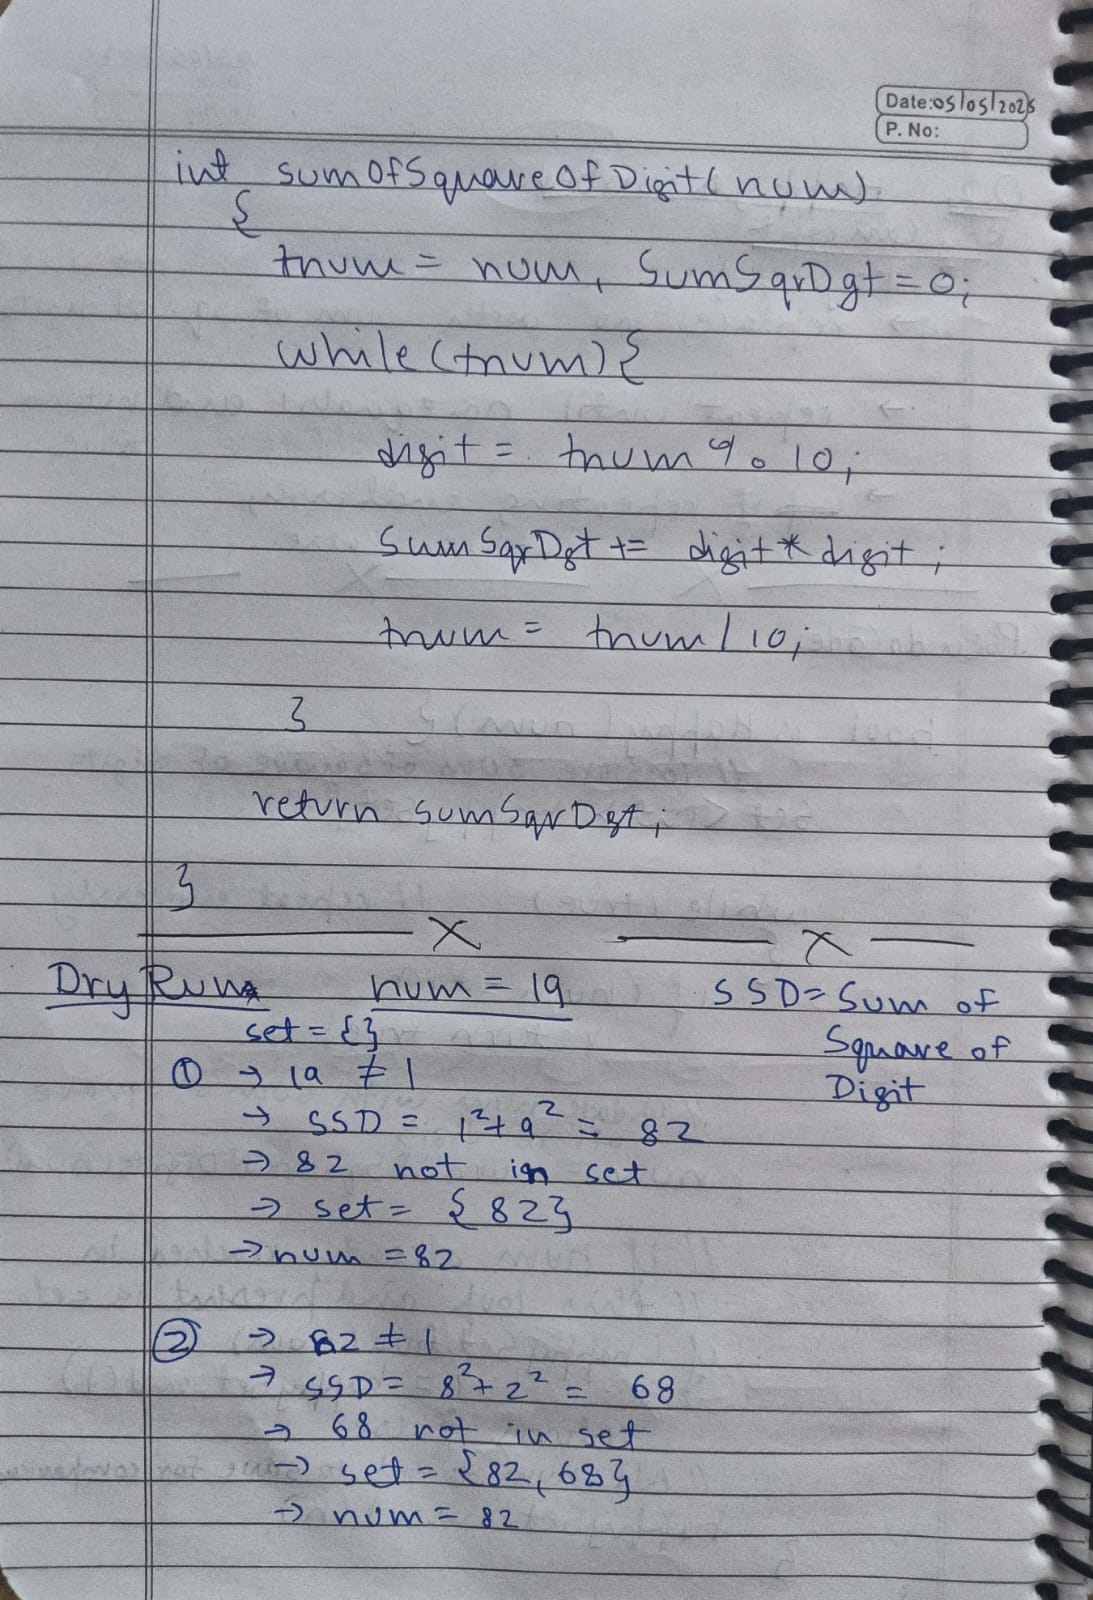 Date:05/05/2025
P. No:
int sumOfSquareOfDigit(num)
{
tnum = num, SumSqrDgt = 0;
while (tnum) {
digit = tnum % 10;
SumSqrDgt += digit * digit;
tnum = tnum / 10;
}
return sumSqrDgt;
}
X X
Dry Run num = 19 SSD = Sum of
Square of
Digit
set = { }
① → 19 ≠ 1
→ SSD = 1² + 9² = 82
→ 82 not in set
→ set = { 82 }
→ num = 82
② → 82 ≠ 1
→ SSD = 8² + 2² = 68
→ 68 not in set
→ set = { 82, 68 }
→ num = 82